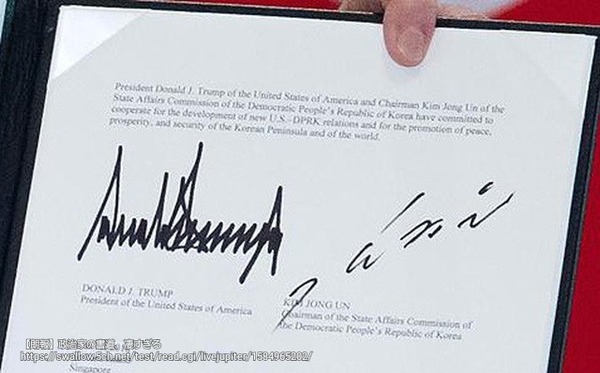 President Donald J. Trump of the United States of America and Chairman Kim Jong Un of the
State Affairs Commission of the Democratic People's Republic of Korea have committed to
cooperate for the development of new U.S.–DPRK relations and for the promotion of peace,
prosperity, and security of the Korean Peninsula and of the world.
DONALD J. TRUMP
President of the United States of America
KIM JONG UN
Chairman of the State Affairs Commission of
the Democratic People's Republic of Korea
【朗報】政治家の書道、凄すぎる
https://swallow.5ch.net/test/read.cgi/livejupiter/1584965202/
Singapore